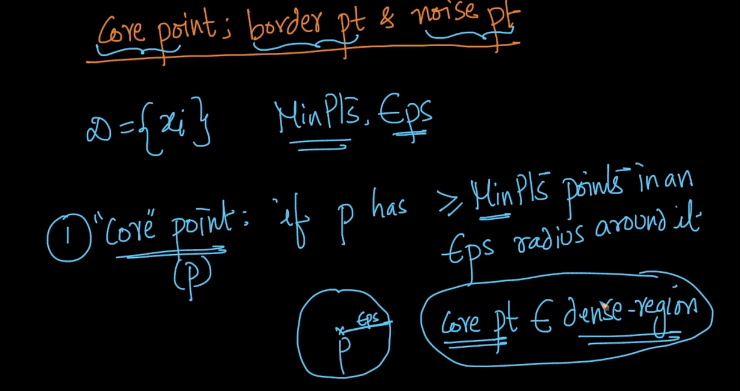 Core point; border pt & noise pt
D = {xi} MinPts, Eps
① "Core" point: if p has ≥ MinPts points in an
(p) Eps radius around it
Eps
p
core pt ∈ dense-region